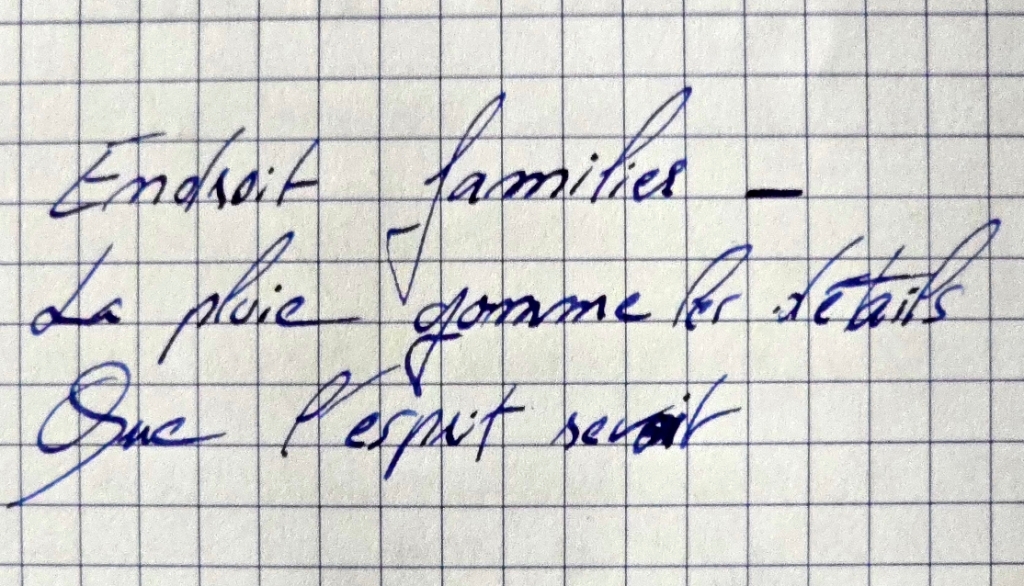 Endroit familier –
La pluie gomme les détails
Que l'esprit revoit